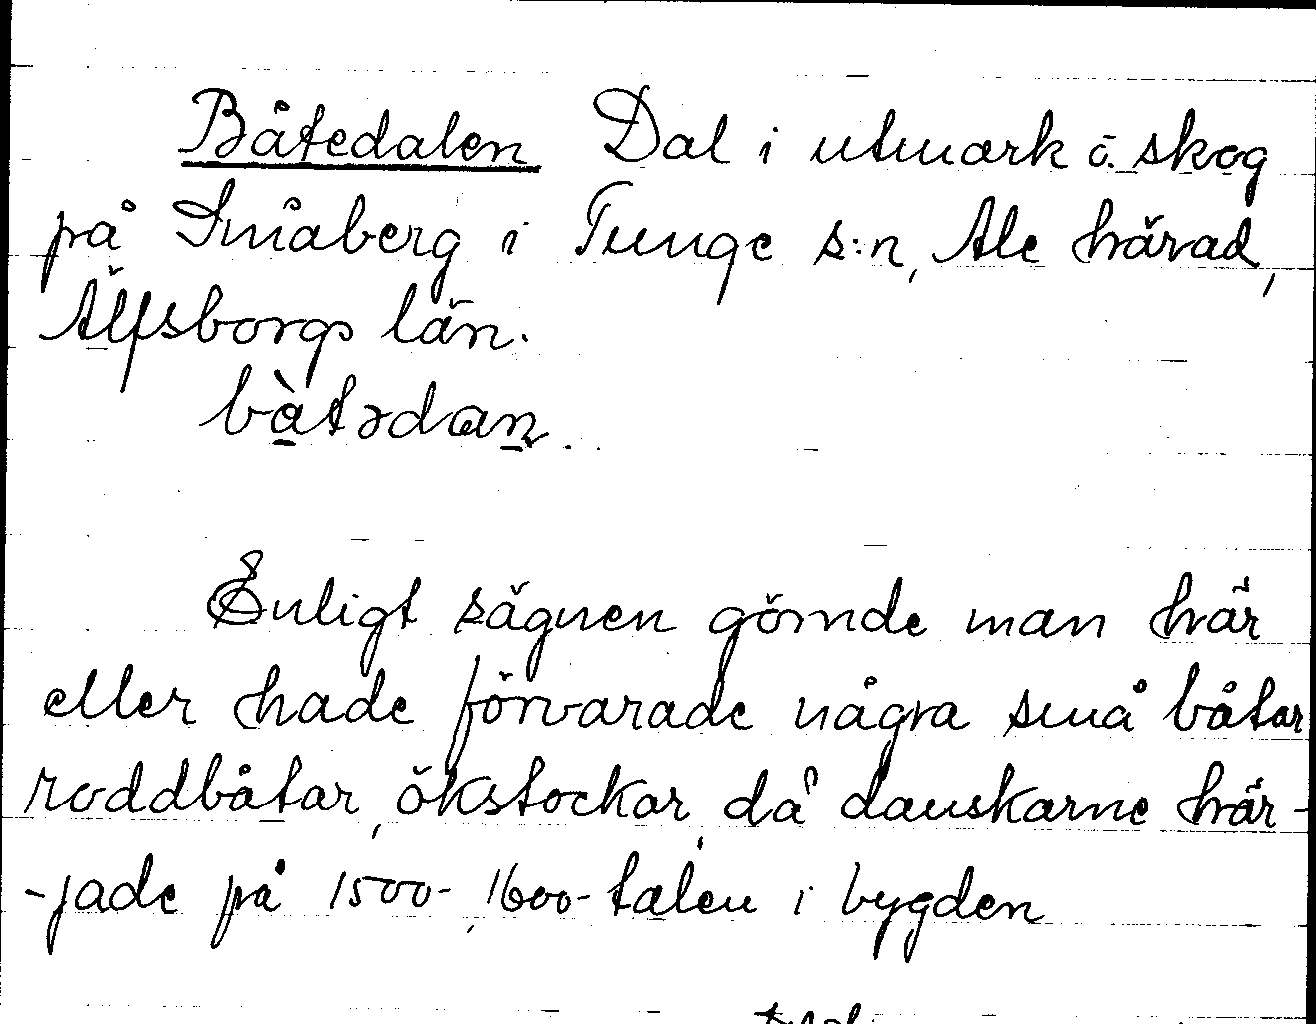 Båtedalen Dal i utmark o. skog
på Småberg i Tunge s:n, Ale härad,
Älfsborgs län.
bàtədan.
Enligt sägnen gömde man här
eller hade förvarade några små båtar
roddbåtar, ökstockar, då danskarne här-
-jade på 1500-, 1600-talen i bygden